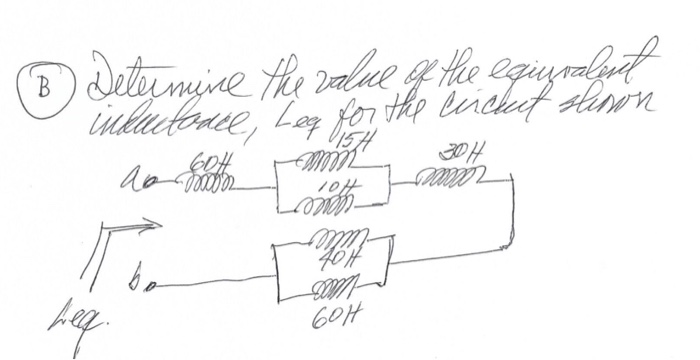 B Determine the value of the equivalent
inductance, Leq for the circuit shown
15H
60H
30H
a
10H
40H
b
60H
Leq.